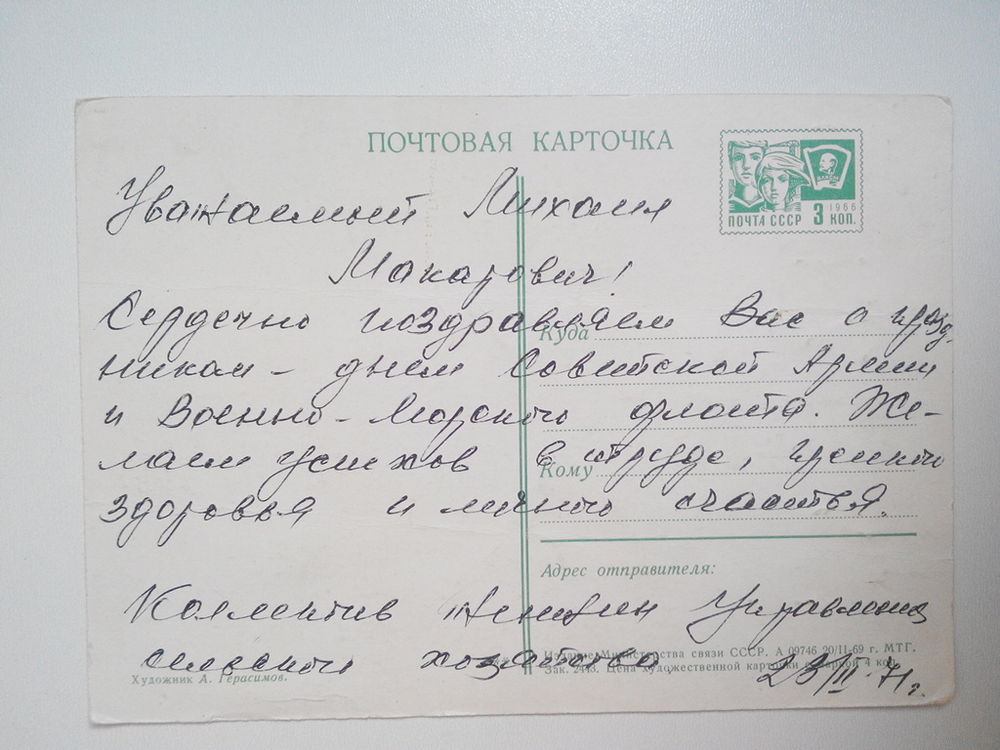 ПОЧТОВАЯ КАРТОЧКА
ПОЧТА СССР 3 КОП. 1966
ВЛКСМ
Уважаемый Михаил
Макарович!
Сердечно поздравляем Вас с празд-
Куда
ником – днем Советской Армии
и Военно-Морского флота. Же-
лаем успехов в труде,
Кому
здоровья и личного счастья.
Адрес отправителя:
Коллектив женщин Управления
сельского хозяйства
Издание Министерства связи СССР. А 09746 20/II-69 г. МТГ.
Зак. Цена художественной карточки с маркой 4 коп.
Художник А. Герасимов.
23/II-71 г.